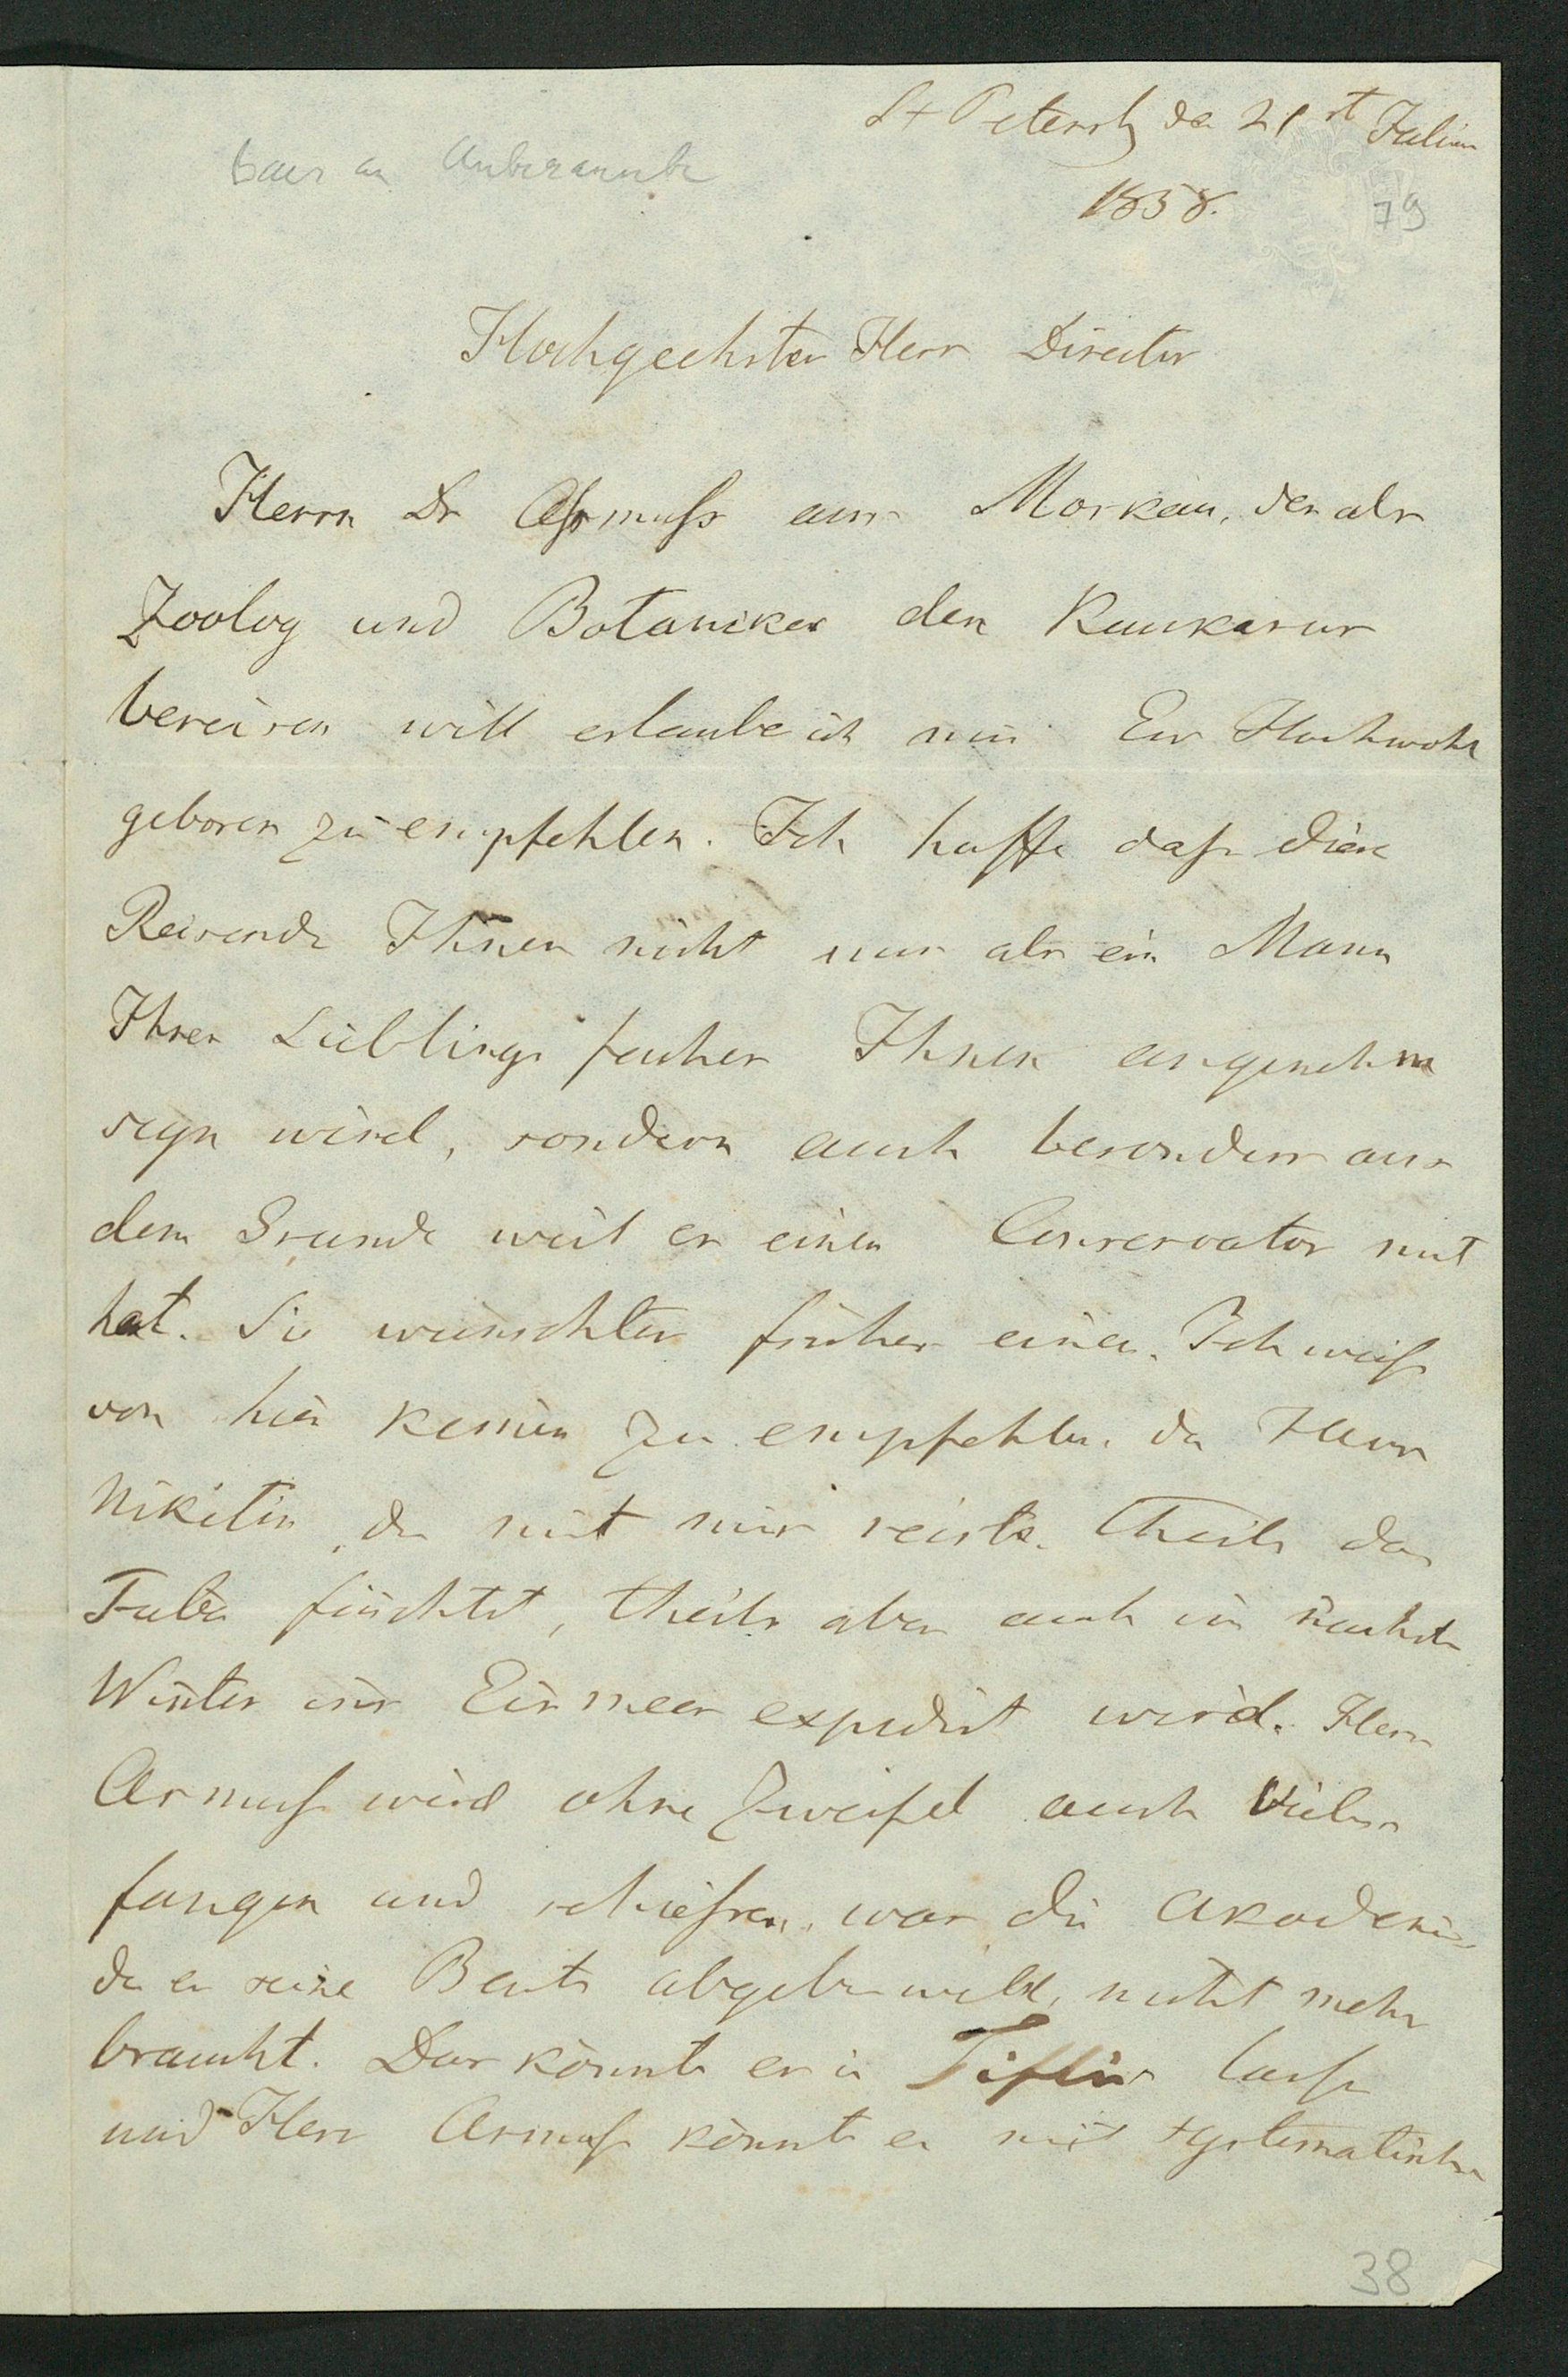 St Petersb den 21st
1858.
79
Baer an Unbekannte
Hochgeehrter Herr Director
Herrn Dr Asmuss aus Moskau, der als
Zoolog und Botaniker den Kaukasus
bereisen will erlaube ich mir Ew Hochwohl
geboren zu empfehlen. Ich hoffe dass diese
Reisende Ihnen nicht nur als ein Mann
Ihrer Lieblings fächer Ihnen angenehm
seyn wird, sondern auch besonders aus
dem Grunde weil er einen Conservator mit
hat. Sie wünschten früher einen. Ich weiss
von hier keinen zu empfehlen, da Herr
Nikitin, der mit mir reiste. theils das
Fieber fürchtet, theils aber auch im nächsten
Winter ins Eismeer expedirt wird. Herr
Asmuss wird ohne Zweifel auch Vieles
fangen und schiessen, was die Akademie
der er seine Beute abgeben will, nicht mehr
braucht. Das könnte er in Tiflis lassen
und Herr Asmuss könnte es mit systematischen
38